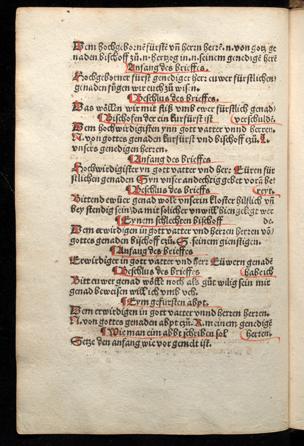 Dem hochgebornē fürstē vn̄ herrn herē. n. von gotz ge
naden bischoff zū. n. hertzog in. n. seinem genedigē herē
Anfang des brieffes.
Hochgeborner fürst genediger herr euwer fürstlichen
genaden fügen wir euch zū wissen
Beschlus des brieffes.
Das wöllen wir mit fliß vmb ewer fürstlich genad
Bischofen der ein kurfürst ist verschuldē.
Dem hochwirdigisten ynn gott vatter vnnd herren.
N. von gottes genaden kurfürst vnd bischoff zū.
vnsers genedigen herren.
Anfang des brieffes
Hochwirdigister yn gott vatter vnd herr Euren für
stlichen genaden Syn vnser andechtig gebet vorā be
Beschlus des brieffs reyt.
Bittend ewūer genad wölle vnserin kloster hilflich vn̄
bey stendig sein da mit solicher vnwill hin geleget wer
Eynem schlechten bischoff de.
Dem erwirdigen in gott vatter vnd herren herren vō
gottes genaden bischoff zū. S. seinem gienstigen.
Anfang des brieffes
Erwirdiger in gott vatter vnd herr Euwern genadē
Beschlus des brieffes
Bitt en wer genad wölle noch als gūt willig sein mit
genad beweisen will ich vmb vch.
Eym gefursten abpt.
Dem erwirdigen in gott vatter vnnd herren herren.
N. von gottes genaden abpt zū. K. in einem genedigē
Wie man eim abbt schriben sol herren.
Setze den anfang wie vor gemelt ist.